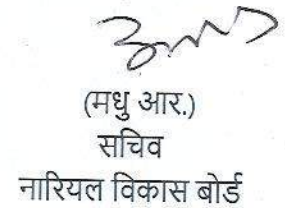 (मधु आर.)
सचिव
नारियल विकास बोर्ड